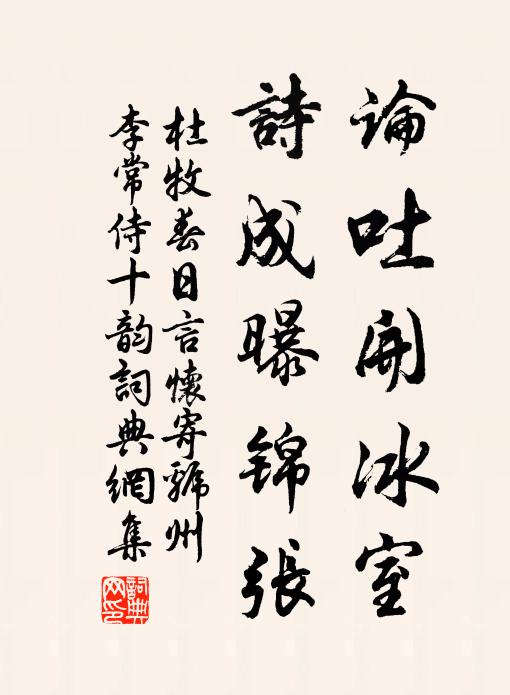 論吐開冰室
詩成曝錦張
杜牧春日言懷寄虢州
李常侍十韵詞典網集
詞典
网印